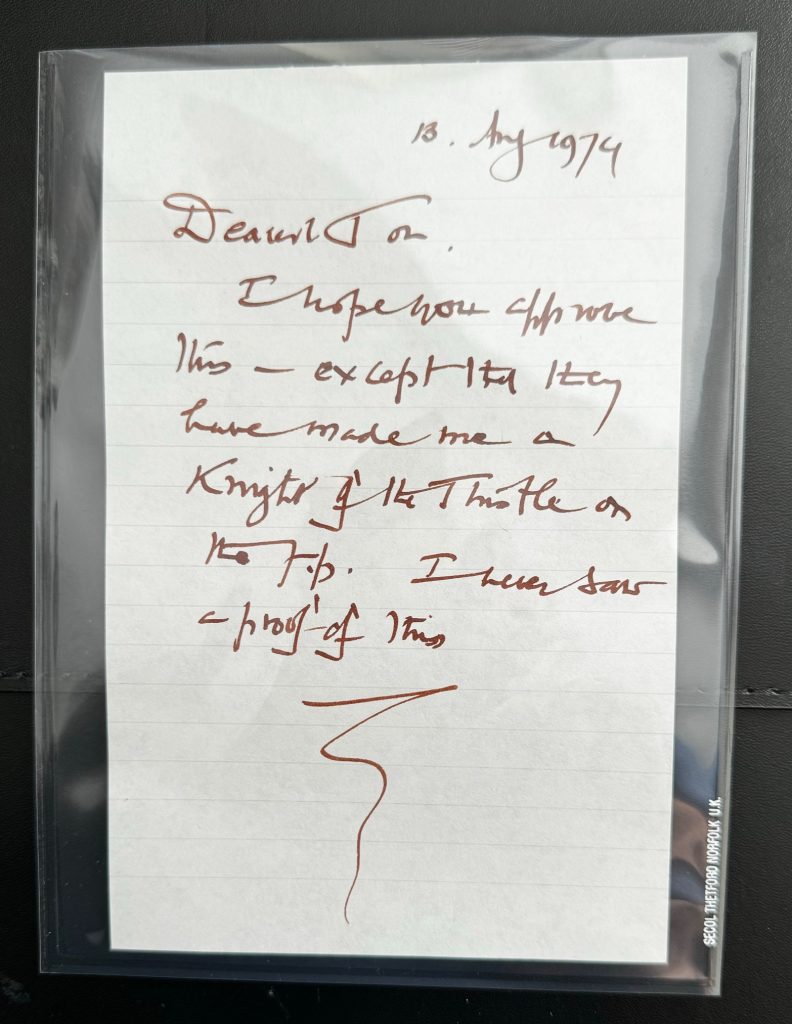 13. Aug 1974
Dearest Jon.
I hope you approve
this — except that they
have made me a
Knight of the Thistle on
the t.p. I never saw
a proof of this
SECOL THETFORD NORFOLK U.K.